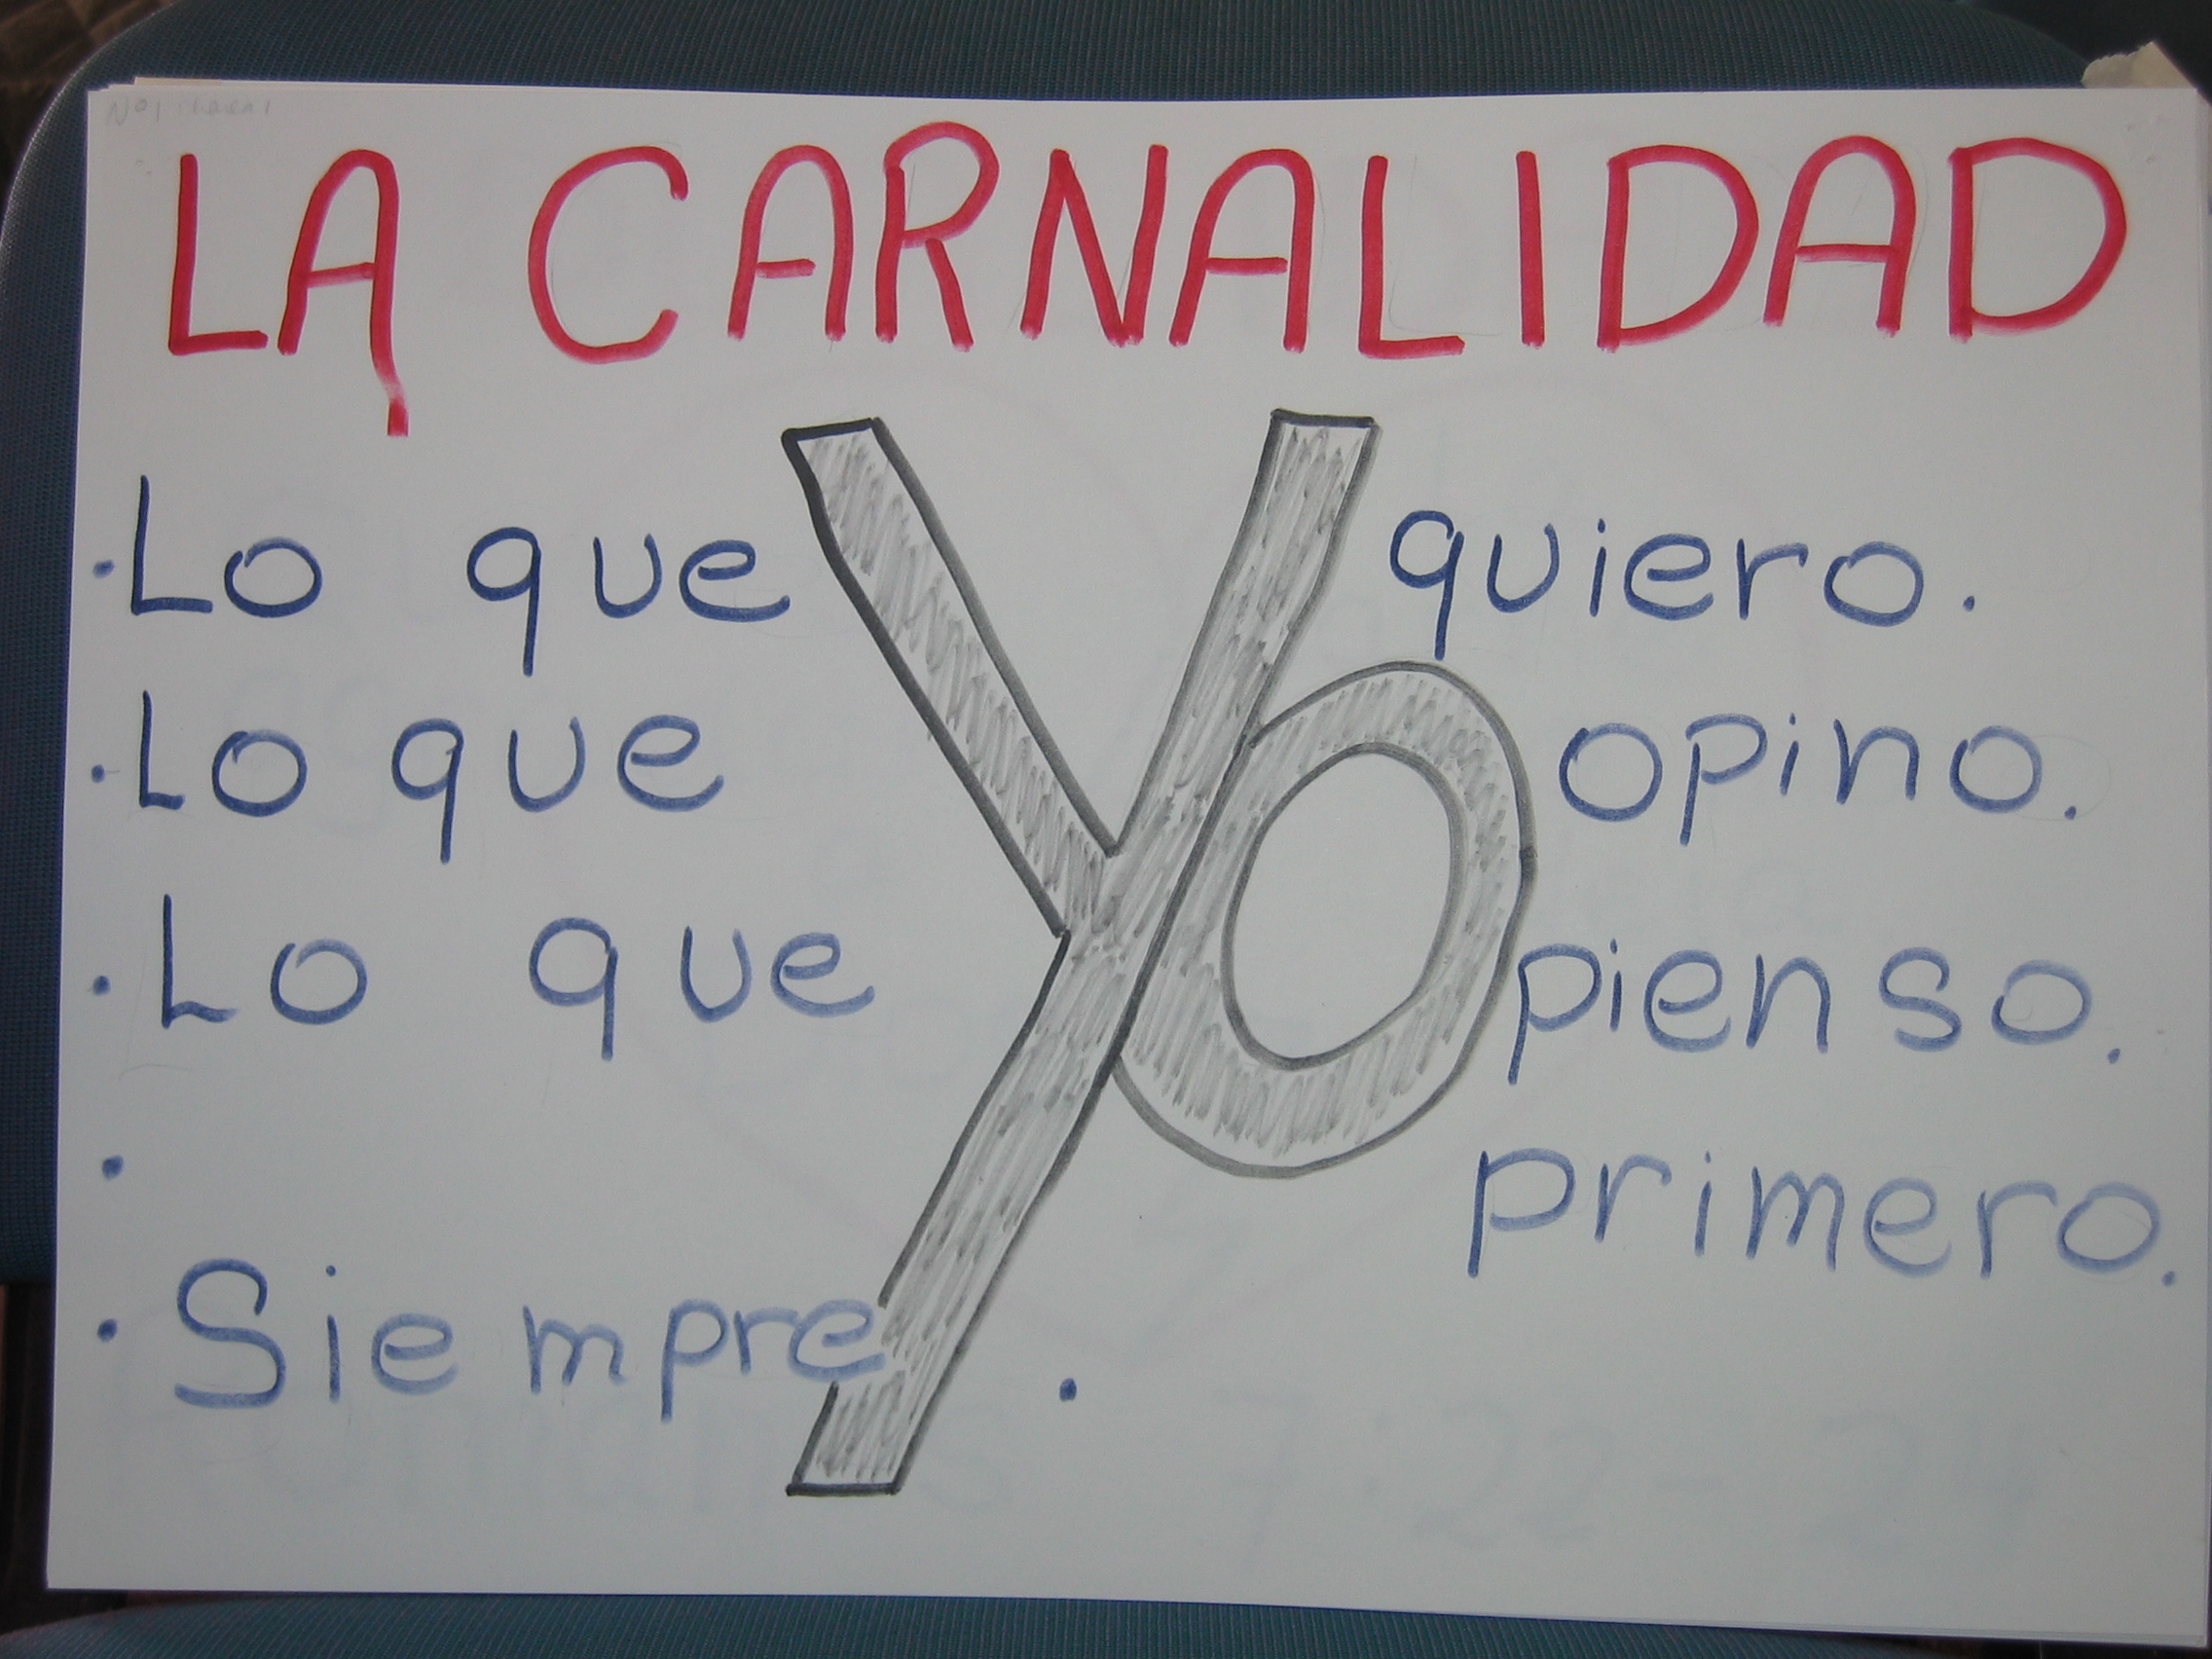 LA CARNALIDAD
· Lo que Yo quiero.
· Lo que Yo opino.
· Lo que Yo pienso.
· Yo primero.
· Siempre Yo.